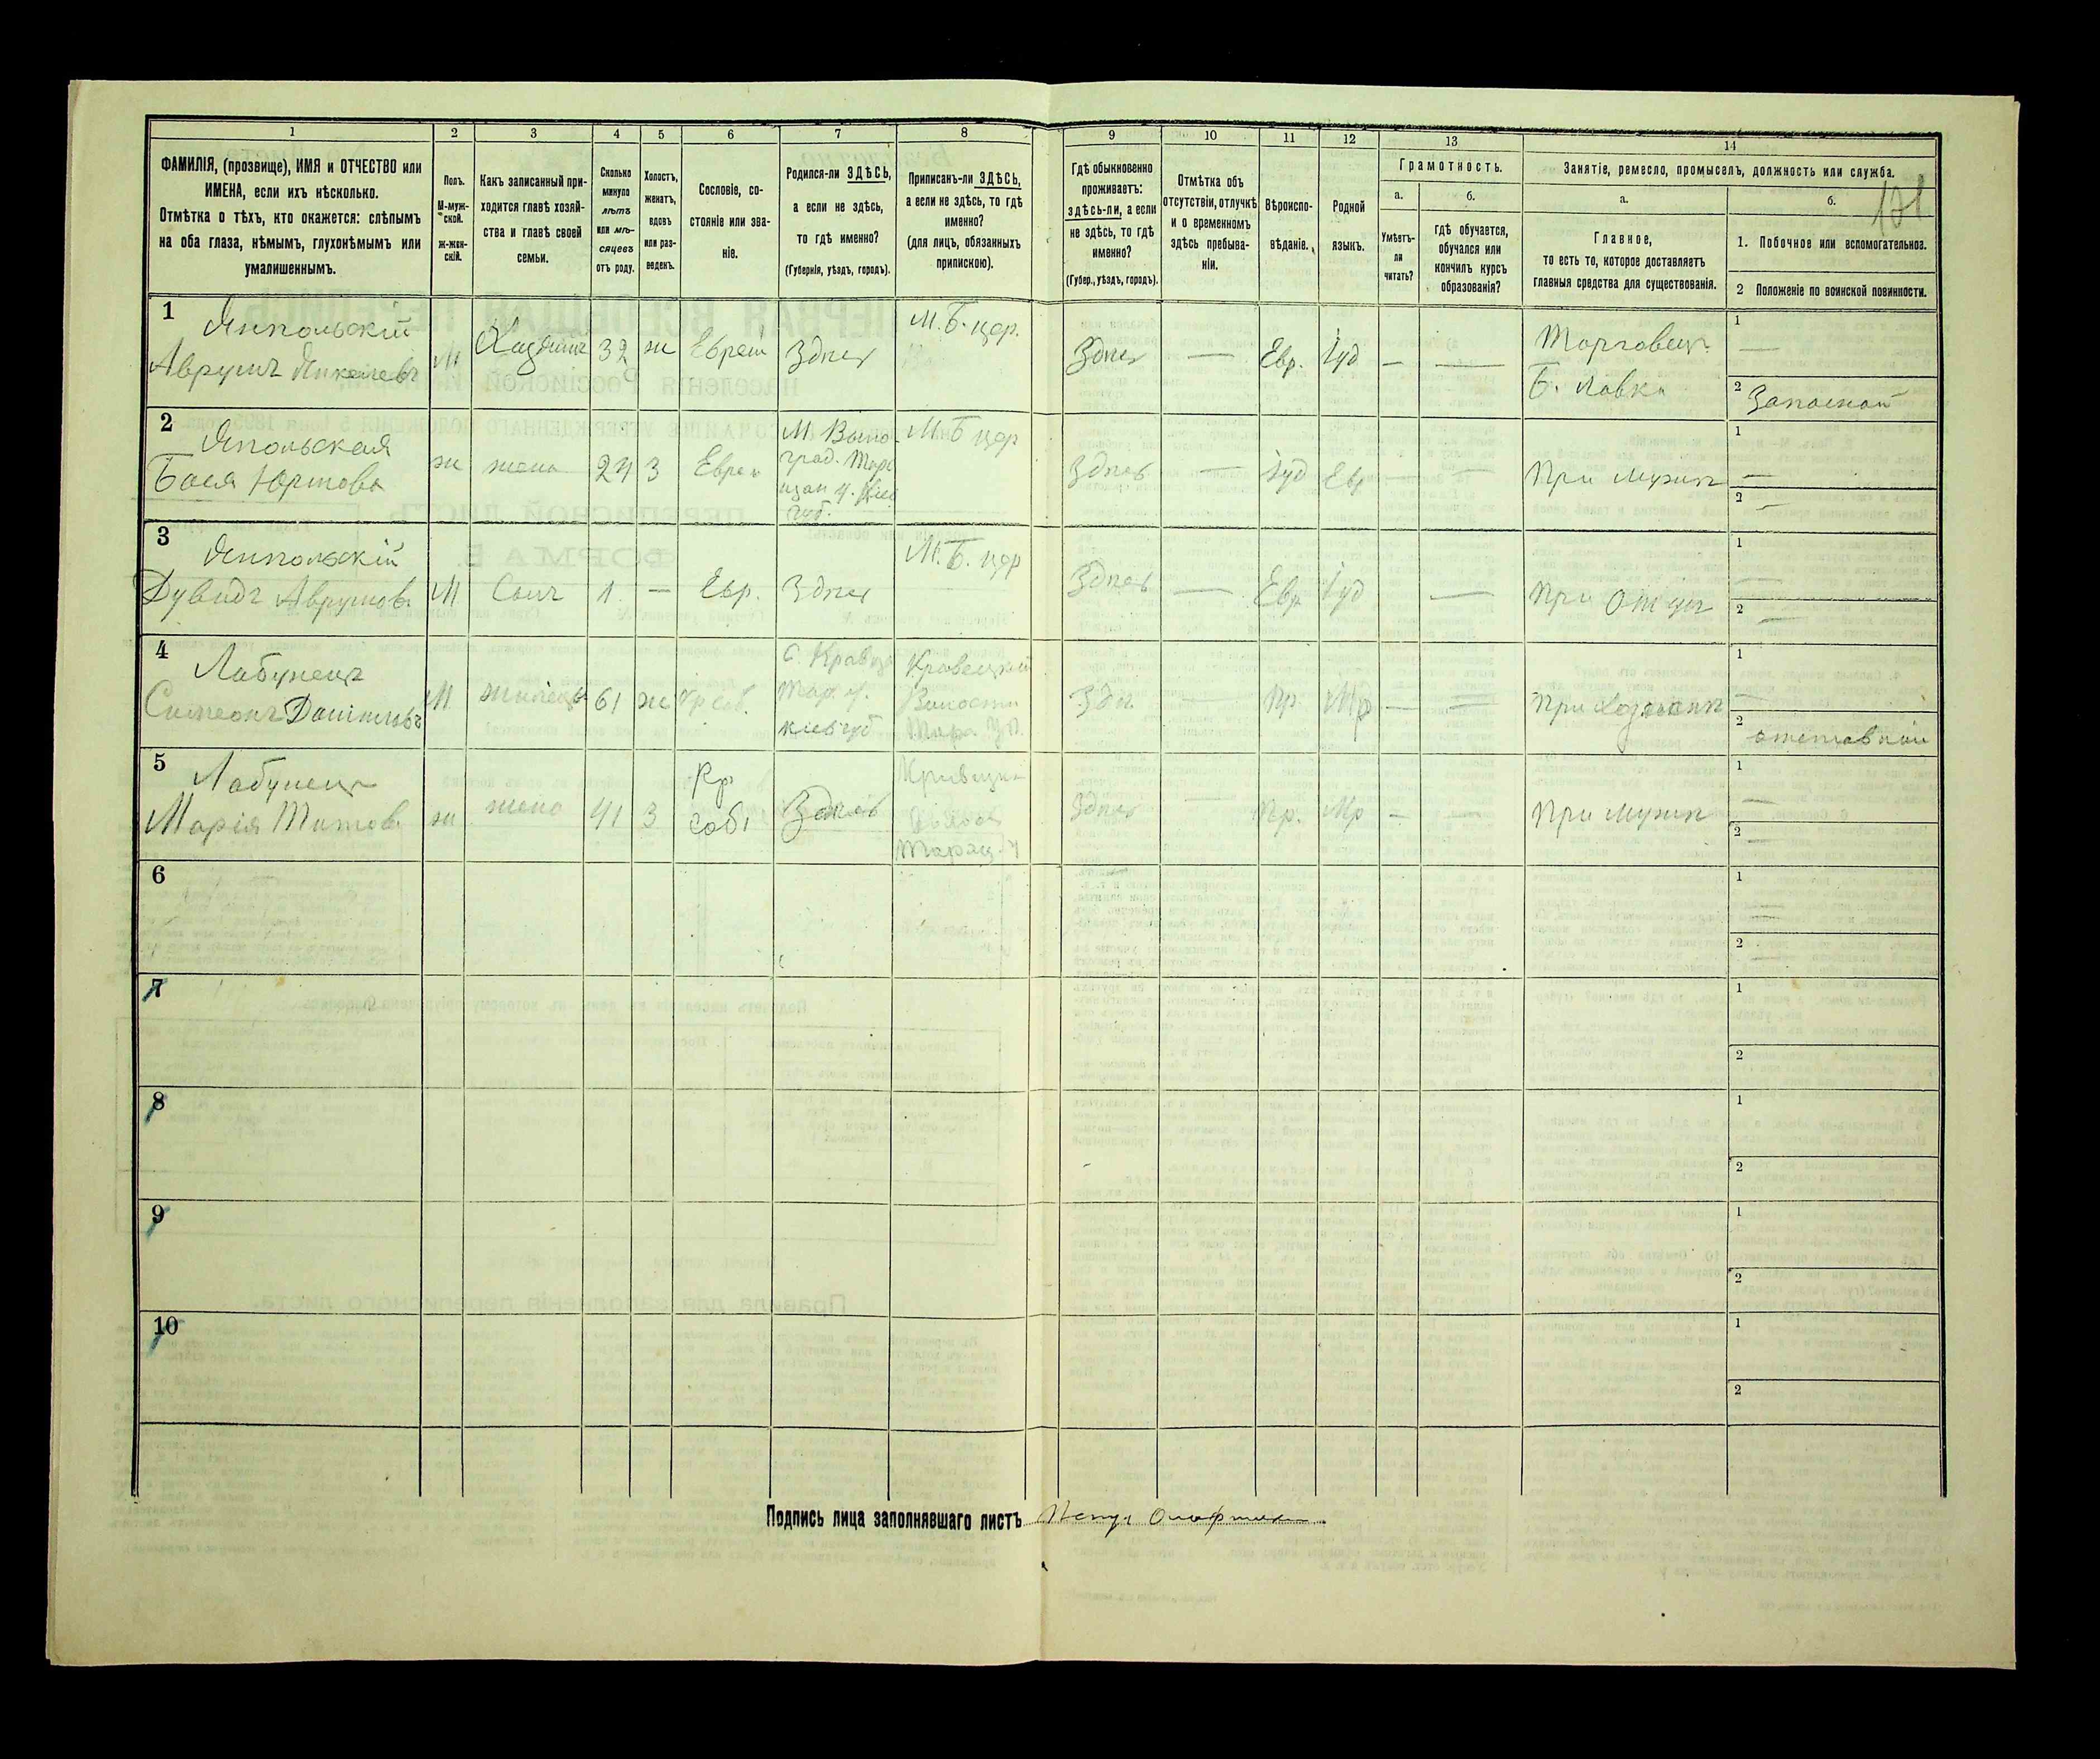 1 2 3 4 5 6 7 8 9 10 11 12 13 14
ФАМИЛІЯ, (прозвище), ИМЯ и ОТЧЕСТВО или
ИМЕНА, если ихъ нѣсколько.
Отмѣтка о тѣхъ, кто окажется: слѣпымъ
на оба глаза, нѣмымъ, глухонѣмымъ или
умалишеннымъ.
Полъ.
М-муж-
ской.
ж-жен-
скій.
Какъ записанный при-
ходится главѣ хозяй-
ства и главѣ своей
семьи.
Сколько
минуло
лѣтъ
или мѣ-
сяцевъ
отъ роду.
Холостъ,
женатъ,
вдовъ
или раз-
веденъ.
Сословіе, со-
стояніе или зва-
ніе.
Родился-ли ЗДѢСЬ,
а если не здѣсь,
то гдѣ именно?
(Губернія, уѣздъ, городъ).
Приписанъ-ли ЗДѢСЬ,
а если не здѣсь, то гдѣ
именно?
(для лицъ, обязанныхъ
припискою).
Гдѣ обыкновенно
проживаетъ:
здѣсь-ли, а если
не здѣсь, то гдѣ
именно?
(Губер., уѣздъ, городъ).
Отмѣтка объ
отсутствіи, отлучкѣ
и о временномъ
здѣсь пребыва-
ніи.
Вѣроиспо-
вѣданіе.
Родной
языкъ.
Грамотность.
а.
Умѣетъ-
ли
читать?
б.
гдѣ обучается,
обучался или
кончилъ курсъ
образованія?
Занятіе, ремесло, промыселъ, должность или служба.
а.
Главное,
то есть то, которое доставляетъ
главныя средства для существованія.
б.
1. Побочное или вспомогательное.
2 Положеніе по воинской повинности.
1
Ямпольскій
Аврумъ
М
Хазяинъ
32
ж
Еврей
Здѣсь
М. Б. цер.
Здѣсь
—
Евр.
Іуд
—
—
Торговецъ
Б. лавка
1
—
2 Запасной
2
Ямпольская
Бася
ж
жена
24
3
Еврей
М. Вино-
град.
М. Б цер
Здѣсь
—
Іуд
Евр
—
—
При мужѣ
1
—
2
—
3
Ямпольскій
Дувидъ Аврумов
М
Сынъ
1
—
Евр.
Здѣсь
М. Б. цер
Здѣсь
—
Евр
Іуд
—
При отцѣ
1
—
2
—
4
Лабунецъ
Симеонъ Даніиловъ
М
жилецъ
61
ж
Кр соб.
Тар. у.
кіев губ
Волости
Здѣ.
—
Пр.
Мр
—
—
При хозяинѣ
1
—
2 отставной
5
Лабунецъ
Марія Титов.
ж
жена
41
3
Кр
собі
Здѣсь
Таращ. у
Здѣсь
—
Пр.
Мр
—
При мужѣ
1
—
2
—
6
1
2
7
1
2
8
1
2
9
1
2
10
1
2
Подпись лица заполнявшаго листъ